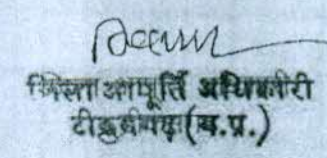 जिला आपूर्ति अधिकारी
टीकमगढ़ (म.प्र.)